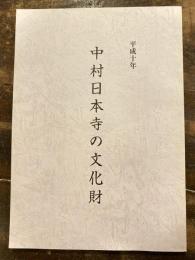 平成十年
中村日本寺の文化財